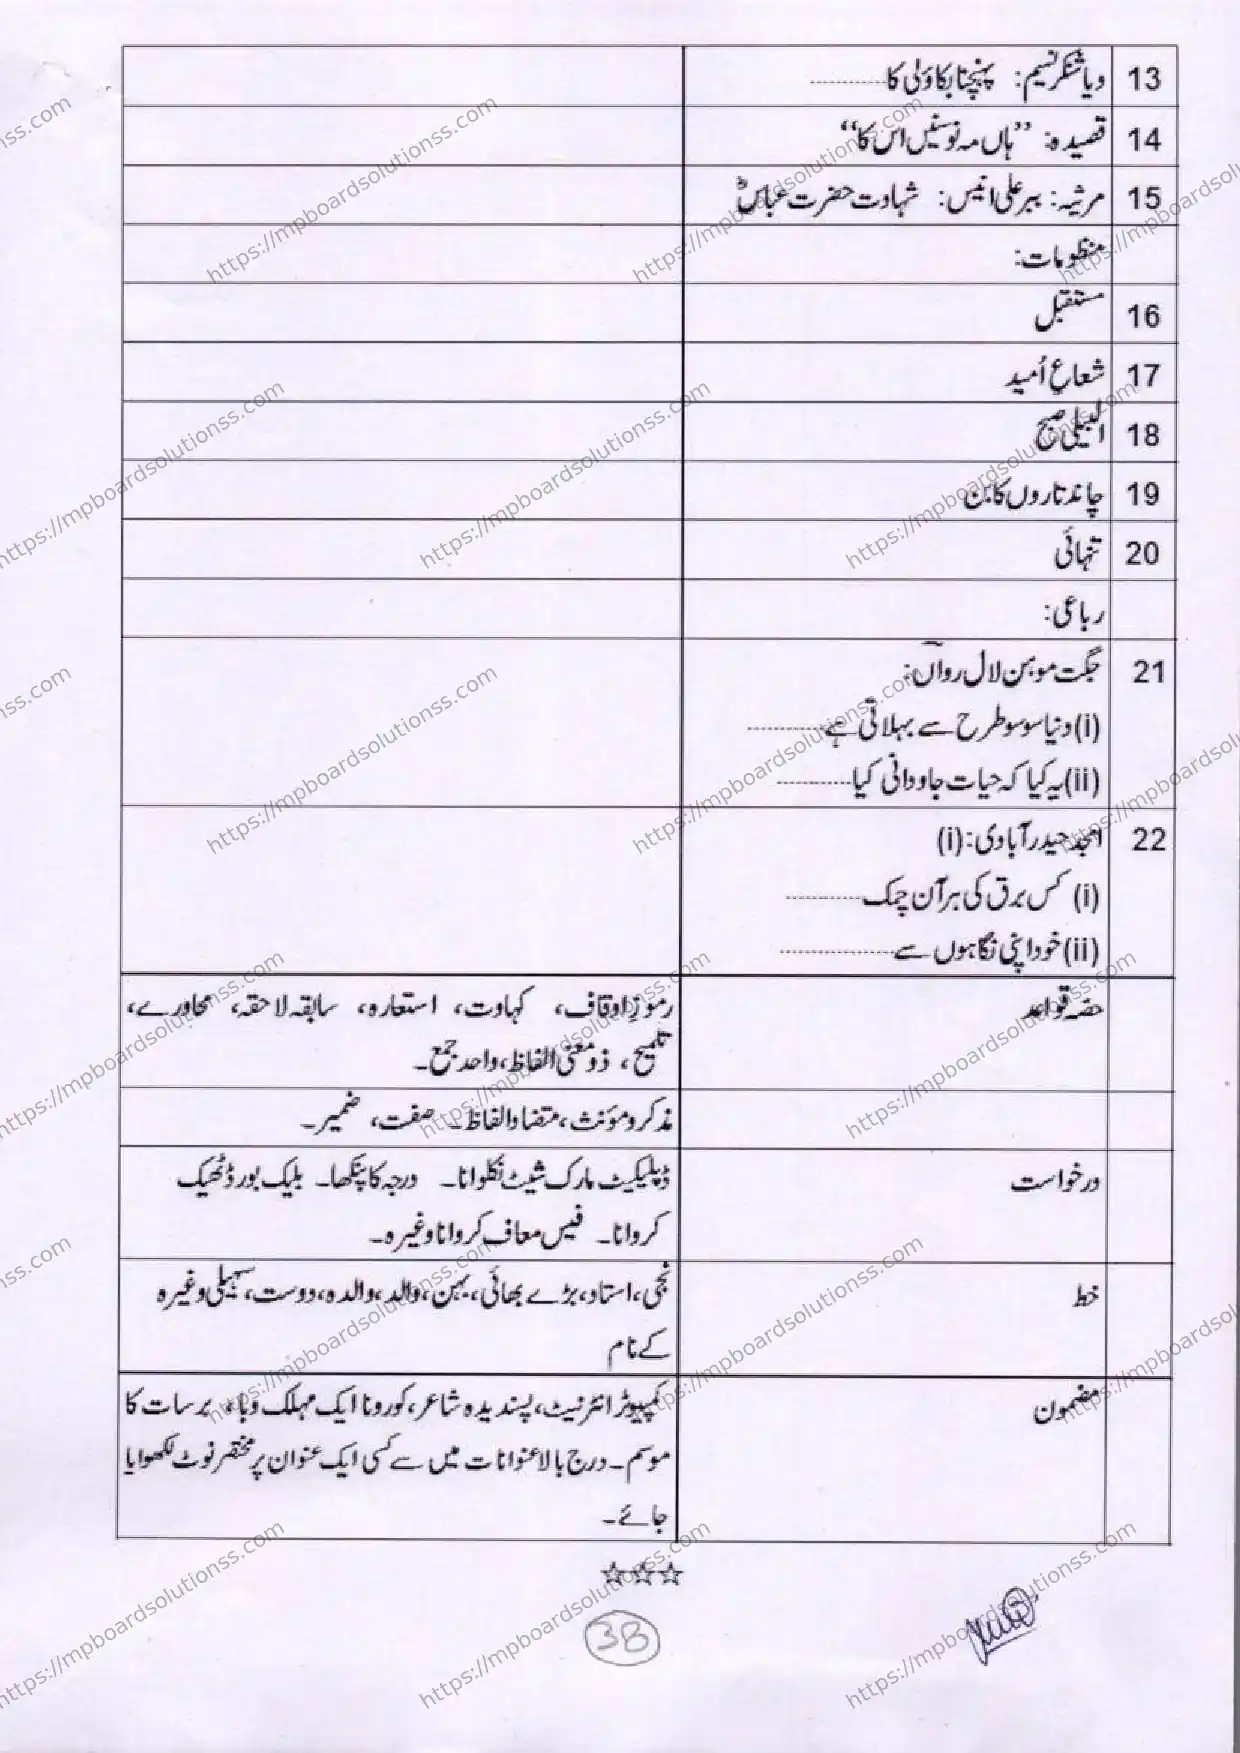 13 دیا شنکر نسیم: پہنچنا بکاؤلی کا............
14 قصیدہ: ”ہاں مہ نو سنیں اس کا“
15 مرثیہ: ببر علی انیس: شہادت حضرت عباسؓ
منظومات:
16 مستقبل
17 شعاعِ اُمید
18 البیلی صبح
19 چاند تاروں کا بن
20 تنہائی
رباعی:
21 جگت موہن لال رواں:
(i) دنیا سو سو طرح سے بہلاتی ہے............
(ii) یہ کیا کہ حیات جاودانی کیا............
22 امجد حیدرآبادی: (i)
(i) کس برق کی ہر آن چمک............
(ii) خود اپنی نگاہوں سے..................
حصہ قواعد
رموزِ اوقاف، کہاوت، استعارہ، سابقہ لاحقہ، محاورے،
تلمیح، ذو معنی الفاظ، واحد جمع۔
مذکر و مؤنث، متضاد الفاظ۔ صفت، ضمیر۔
درخواست
ڈپلیکیٹ مارک شیٹ نکلوانا۔ درجہ کا پنکھا۔ بلیک بورڈ ٹھیک
کروانا۔ فیس معاف کروانا وغیرہ۔
خط
نجی، استاد، بڑے بھائی، بہن، والد، والدہ، دوست، سہیلی وغیرہ
کے نام
مضمون
کمپیوٹر انٹرنیٹ، پسندیدہ شاعر، کورونا ایک مہلک وبا، برسات کا
موسم۔ درج بالا عنوانات میں سے کسی ایک عنوان پر مختصر نوٹ لکھوایا
جائے۔
☆☆☆
38
https://mpboardsolutionss.com